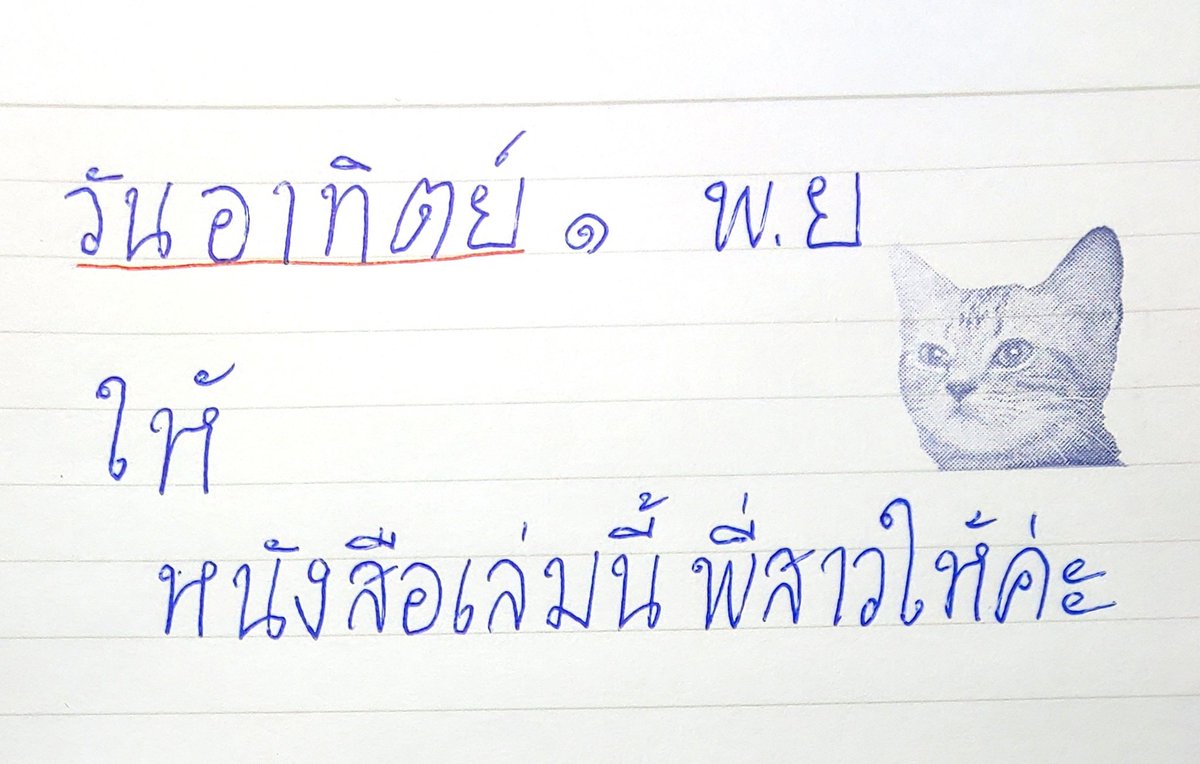 วันอาทิตย์ ๑ พ.ย
ให้
หนังสือเล่มนี้ พี่สาวให้ค่ะ